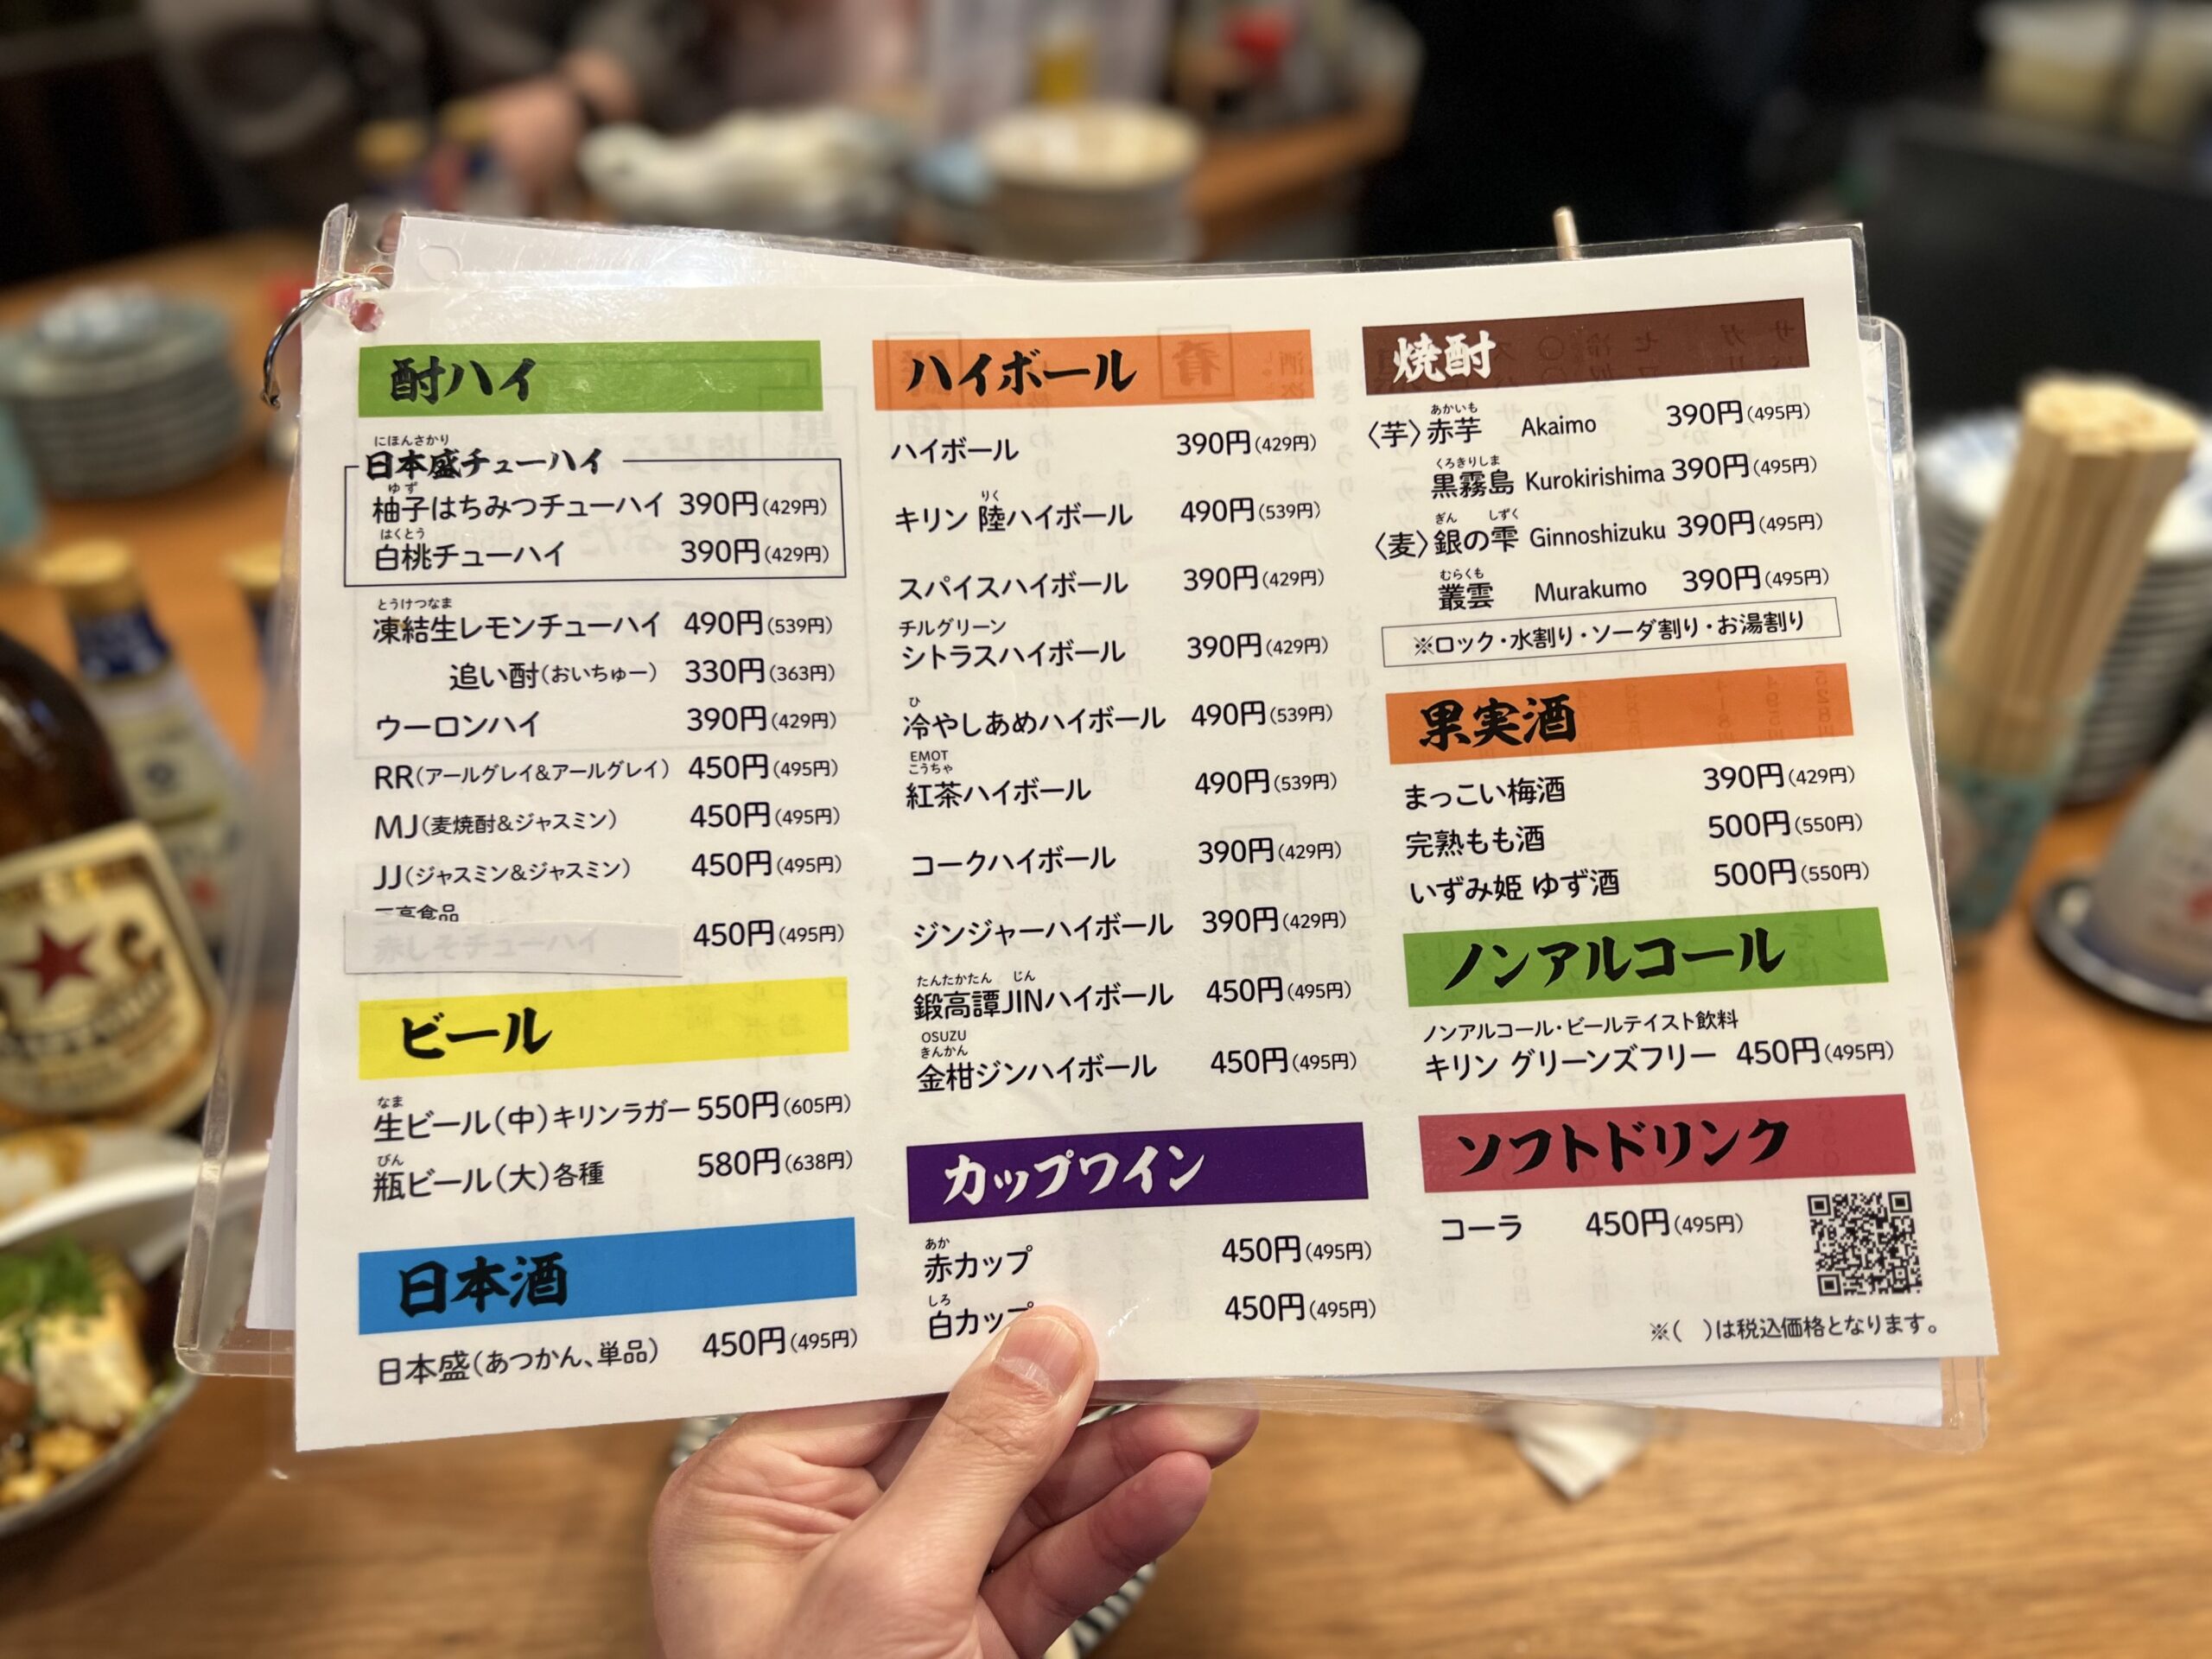 酎ハイ
にほんさかり
日本盛チューハイ
ゆず
柚子はちみつチューハイ 390円(429円)
はくとう
白桃チューハイ 390円(429円)
とうけつなま
凍結生レモンチューハイ 490円(539円)
追い酎(おいちゅー) 330円(363円)
ウーロンハイ 390円(429円)
RR(アールグレイ&アールグレイ) 450円(495円)
MJ(麦焼酎&ジャスミン) 450円(495円)
JJ(ジャスミン&ジャスミン) 450円(495円)
赤しそチューハイ 450円(495円)
ビール
なま
生ビール(中)キリンラガー 550円(605円)
びん
瓶ビール(大)各種 580円(638円)
日本酒
日本盛(あつかん、単品) 450円(495円)
ハイボール
ハイボール 390円(429円)
りく
キリン 陸ハイボール 490円(539円)
スパイスハイボール 390円(429円)
チルグリーン
シトラスハイボール 390円(429円)
ひ
冷やしあめハイボール 490円(539円)
EMOT
こうちゃ
紅茶ハイボール 490円(539円)
コークハイボール 390円(429円)
ジンジャーハイボール 390円(429円)
たんたかたん じん
鍛高譚JINハイボール 450円(495円)
OSUZU
きんかん
金柑ジンハイボール 450円(495円)
カップワイン
あか
赤カップ 450円(495円)
しろ
白カップ 450円(495円)
焼酎
あかいも
〈芋〉赤芋 Akaimo 390円(495円)
くろきりしま
黒霧島 Kurokirishima 390円(495円)
ぎん しずく
〈麦〉銀の雫 Ginnoshizuku 390円(495円)
むらくも
叢雲 Murakumo 390円(495円)
※ロック・水割り・ソーダ割り・お湯割り
果実酒
まっこい梅酒 390円(429円)
完熟もも酒 500円(550円)
いずみ姫 ゆず酒 500円(550円)
ノンアルコール
ノンアルコール・ビールテイスト飲料
キリン グリーンズフリー 450円(495円)
ソフトドリンク
コーラ 450円(495円)
※( )は税込価格となります。